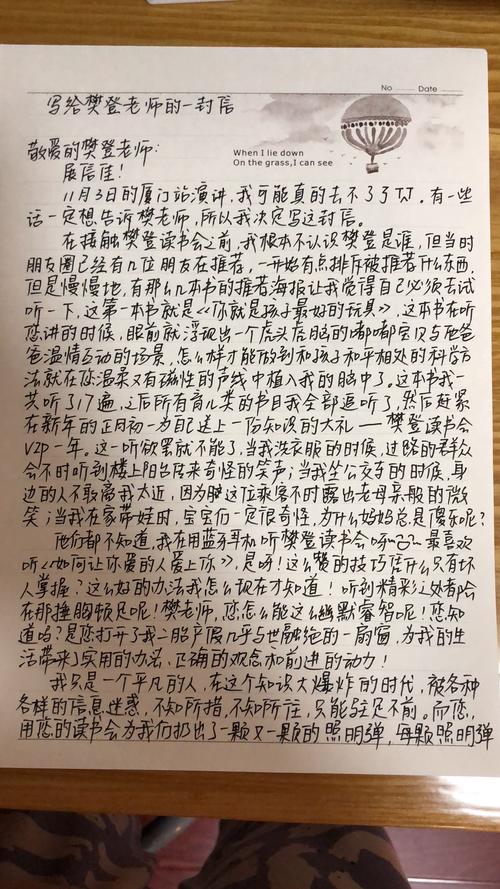 No        Date
写给樊登老师的一封信
When I lie down
On the grass, I can see
敬爱的樊登老师:
展信佳!
11月3日的厦门站演讲,我可能真的去不了了TT。有一些
话一定想告诉樊老师,所以我决定写这封信。
在接触樊登读书会之前,我根本不认识樊登是谁,但当时
朋友圈已经有几位朋友在推荐,一开始有点排斥被推荐什么东西,
但是慢慢地,有那么几本书的推荐海报让我觉得自己必须去试
听一下,这第一本书就是《你就是孩子最好的玩具》,这本书在听
您讲的时候,眼前就浮现出一个虎头虎脑的嘟嘟宝贝与他爸
爸温情互动的场景,怎么样才能做到和孩子和平相处的科学方
法就在您温柔又有磁性的声线中植入我的脑中了。这本书我一
共听了17遍,之后所有育儿类的书目我全部逛听了,然后赶紧
在新年的正月初一为自己送上一份知识的大礼——樊登读书会
VIP一年。这一听欲罢就不能了,当我洗衣服的时候,过路的群众
会不时听到楼上阳台传来奇怪的笑声;当我坐公交车的时候,身
边的人不敢离我太近,因为这位乘客不时露出老母亲般的微
笑;当我在家带娃时,宝宝们一定很奇怪,为什么妈妈总是傻乐呢?
他们都不知道,我在用蓝牙耳机听樊登读书会呀~最喜欢
听《如何让你爱的人爱上你》,是呀!这么赞的技巧凭什么只有坏
人掌握?这么好的办法我怎么现在才知道!听到精彩之处都会
在那捶胸顿足呢!樊老师,您怎么能这么幽默睿智呢!您知
道吗?是您打开了我二胎产假几乎与世隔绝的一扇窗,为我的生
活带来了实用的办法、正确的观念和前进的动力!
我只是一个平凡的人,在这个知识大爆炸的时代,被各种
各样的信息迷惑,不知所措,不知所往,只能驻足不前。而您,
用您的读书会为我们扔出了一颗又一颗的照明弹,每颗照明弹